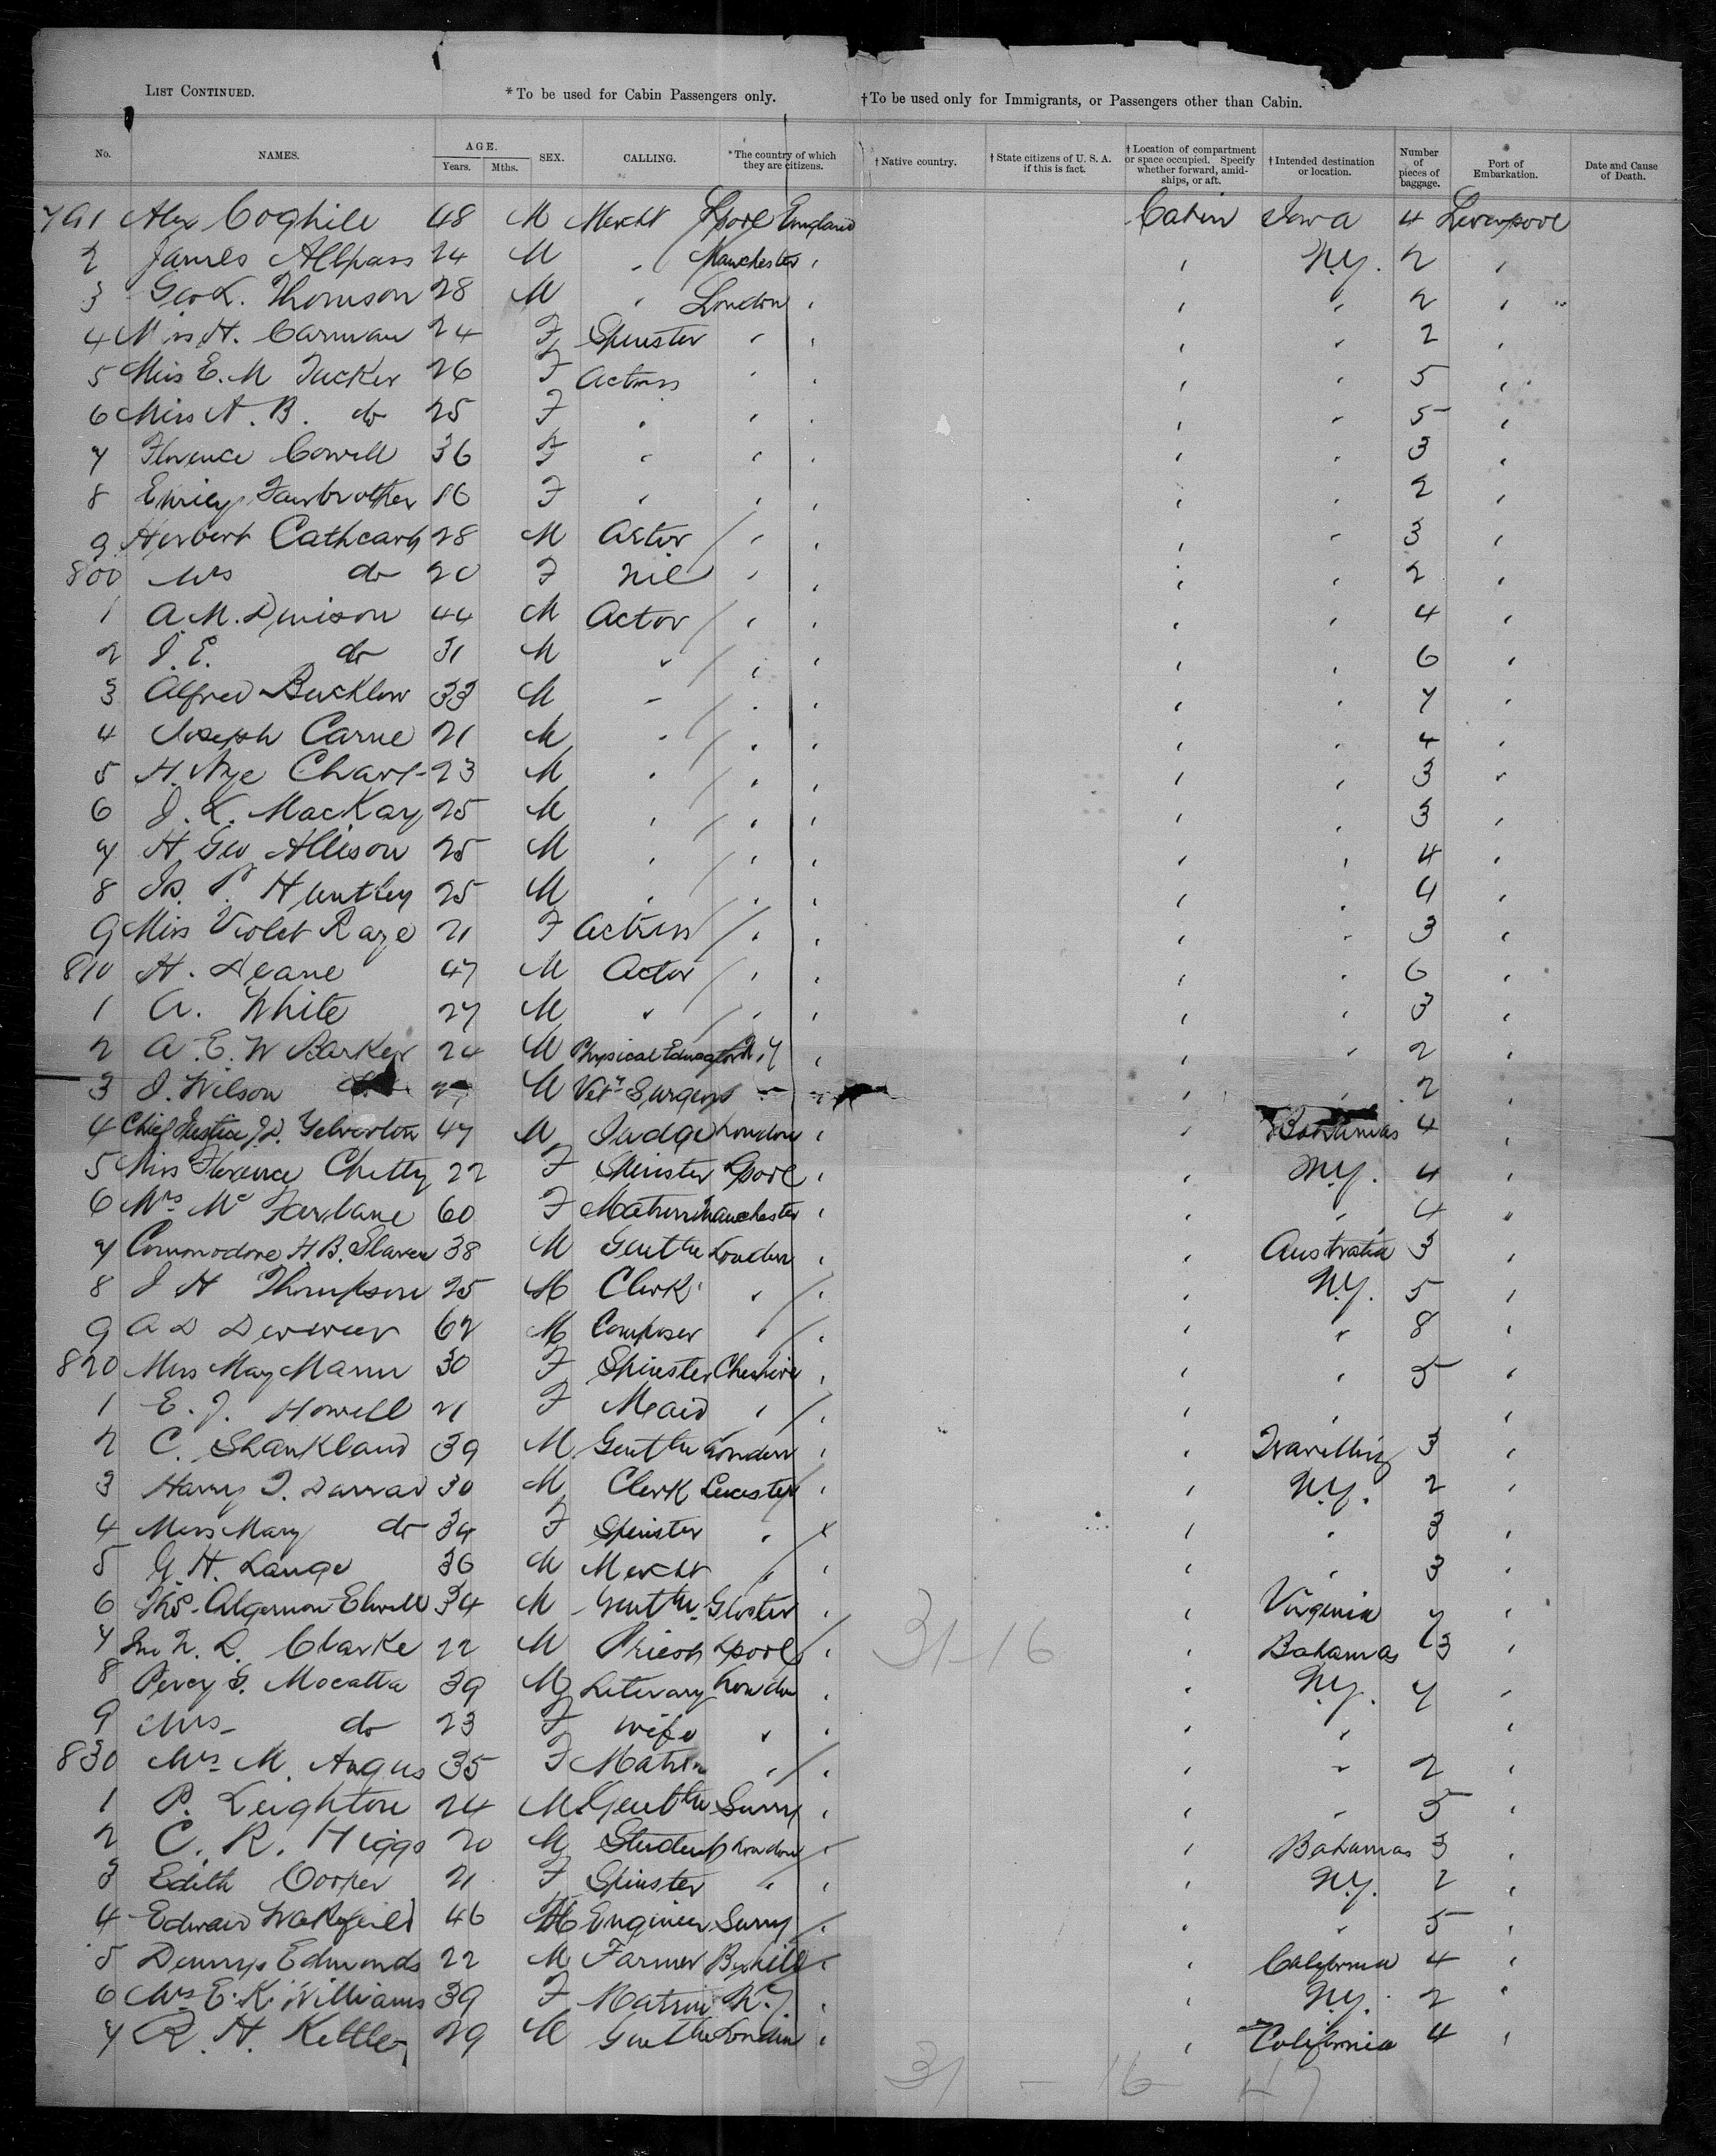 LIST CONTINUED. *To be used for Cabin Passengers only. †To be used only for Immigrants, or Passengers other than Cabin.
No. NAMES. AGE. Years. Mths. SEX. CALLING. *The country of which they are citizens. †Native country. †State citizens of U. S. A. if this is fact. †Location of compartment or space occupied. Specify whether forward, amidships, or aft. †Intended destination or location. Number of pieces of baggage. Port of Embarkation. Date and Cause of Death.
791 Alex Coghill 48 M Mercht Lpool England Cabin Iowa 4 Liverpool
2 James Allpass 24 M " Manchester " " N.Y. 2 "
3 Geo L. Thomson 28 M " London " " " 2 "
4 Miss H. Carman 24 F Spinster " " " " 2 "
5 Miss E. M Tucker 26 F Actress " " " " 5 "
6 Miss A. B. do 25 F " " " " " 5 "
7 Florence Cowell 36 F " " " " " 3 "
8 Emily Fairbrother F " " " " " 2 "
9 Herbert Cathcart 28 M Actor / " " " " 3 "
800 Mrs do 20 F Nil " " " " 2 "
1 A. M. Denison 44 M Actor / " " " " 4 "
2 J. E. do 31 M " / " " " " 6 "
3 Alfred Bucklow 33 M " / " " " " 7 "
4 Joseph Carne 21 M " / " " " " 4 "
5 H. Nye Chart 23 M " / " " " " 3 "
6 J. L. MacKay 25 M " / " " " " 3 "
7 H Geo Allison 25 M " / " " " " 4 "
8 P. Huntley 25 M " / " " " " 4 "
9 Miss Violet Raye 21 F Actress / " " " " 3 "
810 H. Deane 47 M Actor / " " " " 6 "
1 A. White 27 M " / " " " " 3 "
2 A. E. W Barker 24 M Physical Educator N.Y " " " 2 "
3 J. Wilson M Vety Surgeon " " " 2 "
4 Chief Justice Yelverton 47 M Judge London " " Bahamas 4 "
5 Miss Florence Chetty 22 F Spinster Lpool " " N.Y. 4 "
6 Mrs Mc Farlane 60 F Matron Manchester " " " 4 "
7 Commodore H. B. Slaven 38 M Gentln London " " Australia 3 "
8 J H Thompson 25 M Clerk " / " " N.Y. 5 "
9 A D 62 M Composer " / " " " 8 "
820 Miss May Mann 30 F Spinster Cheshire " " " 5 "
1 E. J. Howell 21 F Maid " / " " " "
2 C. Shankland 39 M Gentln London " " Travelling 3 "
3 Harry 30 M Clerk Leicester " " N.Y. 2 "
4 Miss Mary do 34 F Spinster " " " 3 "
5 G. H. Lange 36 M Mercht " / " " " 3 "
6 Thos. Algernon Elwell 34 M Gentln. Gloster " " Virginia 7 "
7 L. Clarke 22 M Priest Lpool / " 31-16 " Bahamas 3 "
8 Percy G. Mocatta 39 M Literary London " " N.Y. 7 "
9 Mrs do 23 F wife " " " " "
830 Mrs M. Angus 35 F Matron " / " " " 2 "
1 P. Leighton 24 M Gentln Surry " " " 5 "
2 C. R. Higgs 20 M Student London / " " Bahamas 3 "
3 Edith Cooper 21 F Spinster " " " N.Y. 2 "
4 Edward Wakefield 46 M Engineer Surry / " " " 5 "
5 Dennys Edmonds 22 M Farmer Bexhill / " " California 4 "
6 Mrs E. K. Williams 39 F Matron N.Y. " " N.Y. 2 "
7 R. H. Kettle 29 M Gentln London " " California 4 "
31 - 16 - 17